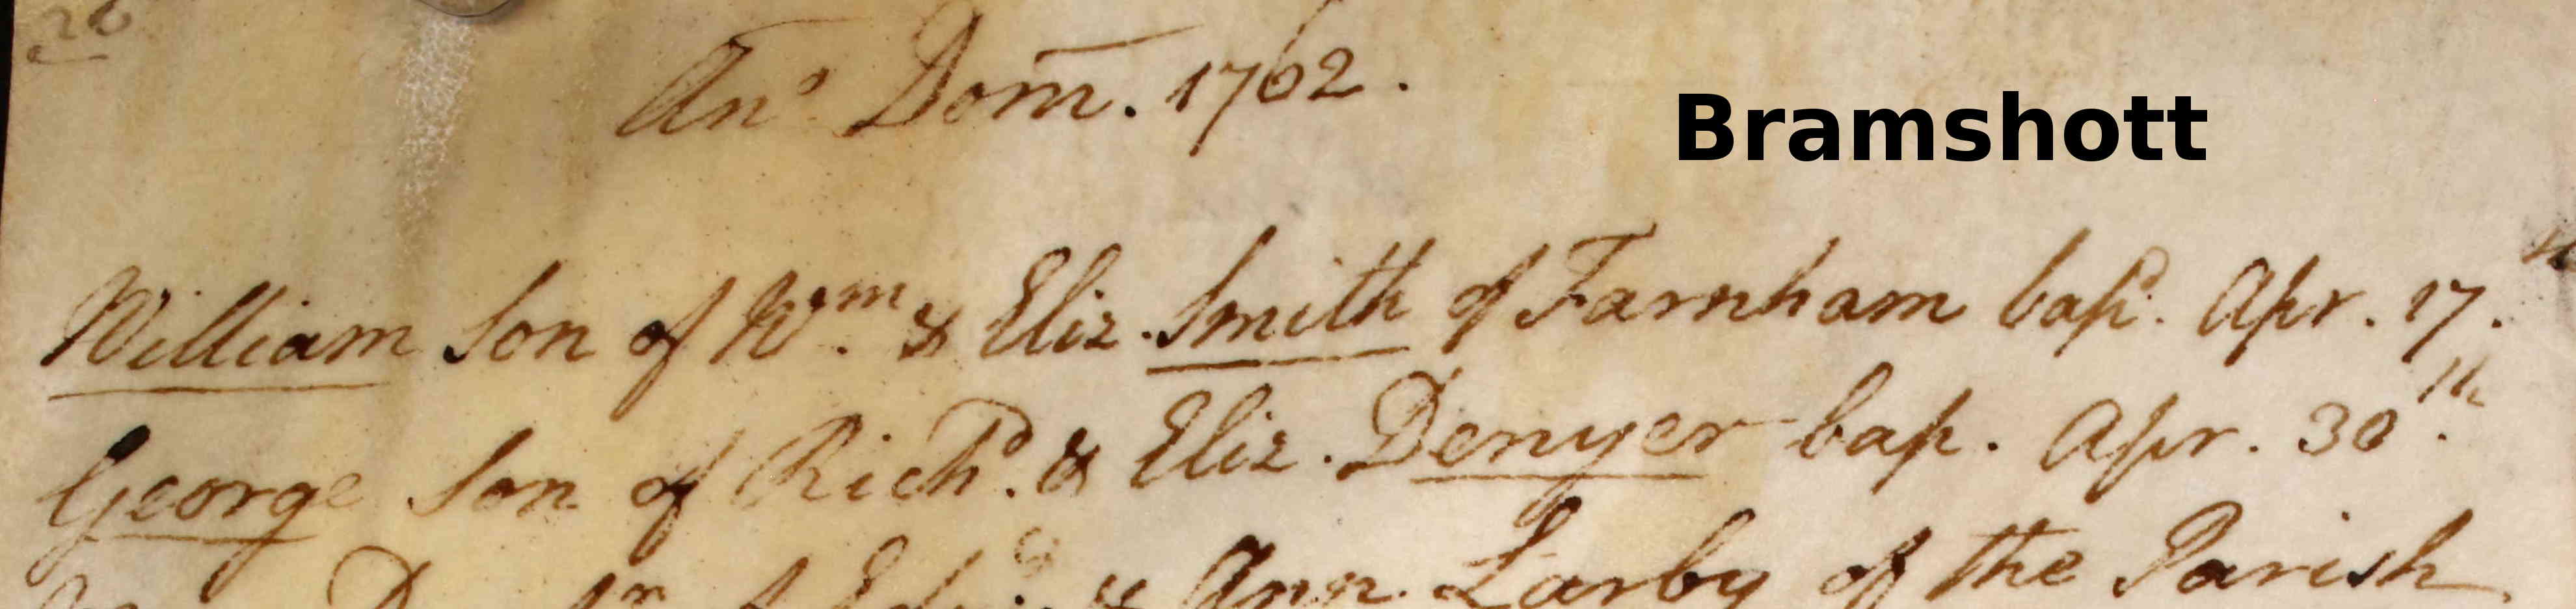 26
Anº Dom. 1762.
Bramshott
William Son of Wm. & Eliz. Smith of Farnham bapd. Apr. 17.th
George Son of Richd. & Eliz. Denyer bap. Apr. 30th.
& Ann Larby of the Parish